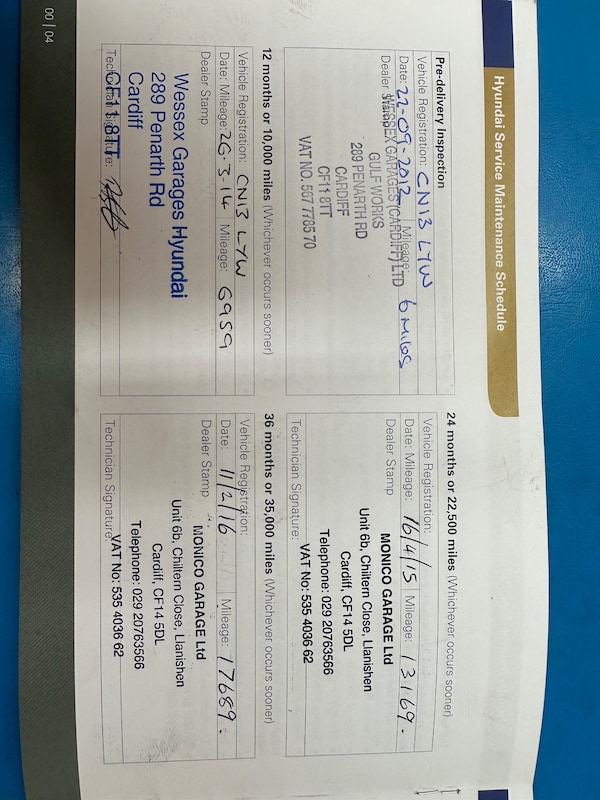 Hyundai Service Maintenance Schedule
Pre-delivery Inspection
Vehicle Registration: CN13 LYW
Date: 22-09-2012 Mileage: 6 Miles
Dealer Stamp
WESSEX GARAGES (CARDIFF) LTD
GULF WORKS
289 PENARTH RD
CARDIFF
CF11 8TT
VAT NO. 567 7785 70
12 months or 10,000 miles (Whichever occurs sooner)
Vehicle Registration: CN13 LYW
Date: 26.3.14 Mileage: 6959
Dealer Stamp
Wessex Garages Hyundai
289 Penarth Rd
Cardiff
CF11 8TT
Technician Signature:
24 months or 22,500 miles (Whichever occurs sooner)
Vehicle Registration:
Date: 16/4/15 Mileage: 13169.
Dealer Stamp
MONICO GARAGE Ltd
Unit 6b, Chiltern Close, Llanishen
Cardiff, CF14 5DL
Telephone: 029 20763566
VAT No: 535 4036 62
Technician Signature:
36 months or 35,000 miles (Whichever occurs sooner)
Vehicle Registration:
Date: 11/2/16 Mileage: 17689.
Dealer Stamp
MONICO GARAGE Ltd
Unit 6b, Chiltern Close, Llanishen
Cardiff, CF14 5DL
Telephone: 029 20763566
VAT No: 535 4036 62
Technician Signature:
00 | 04